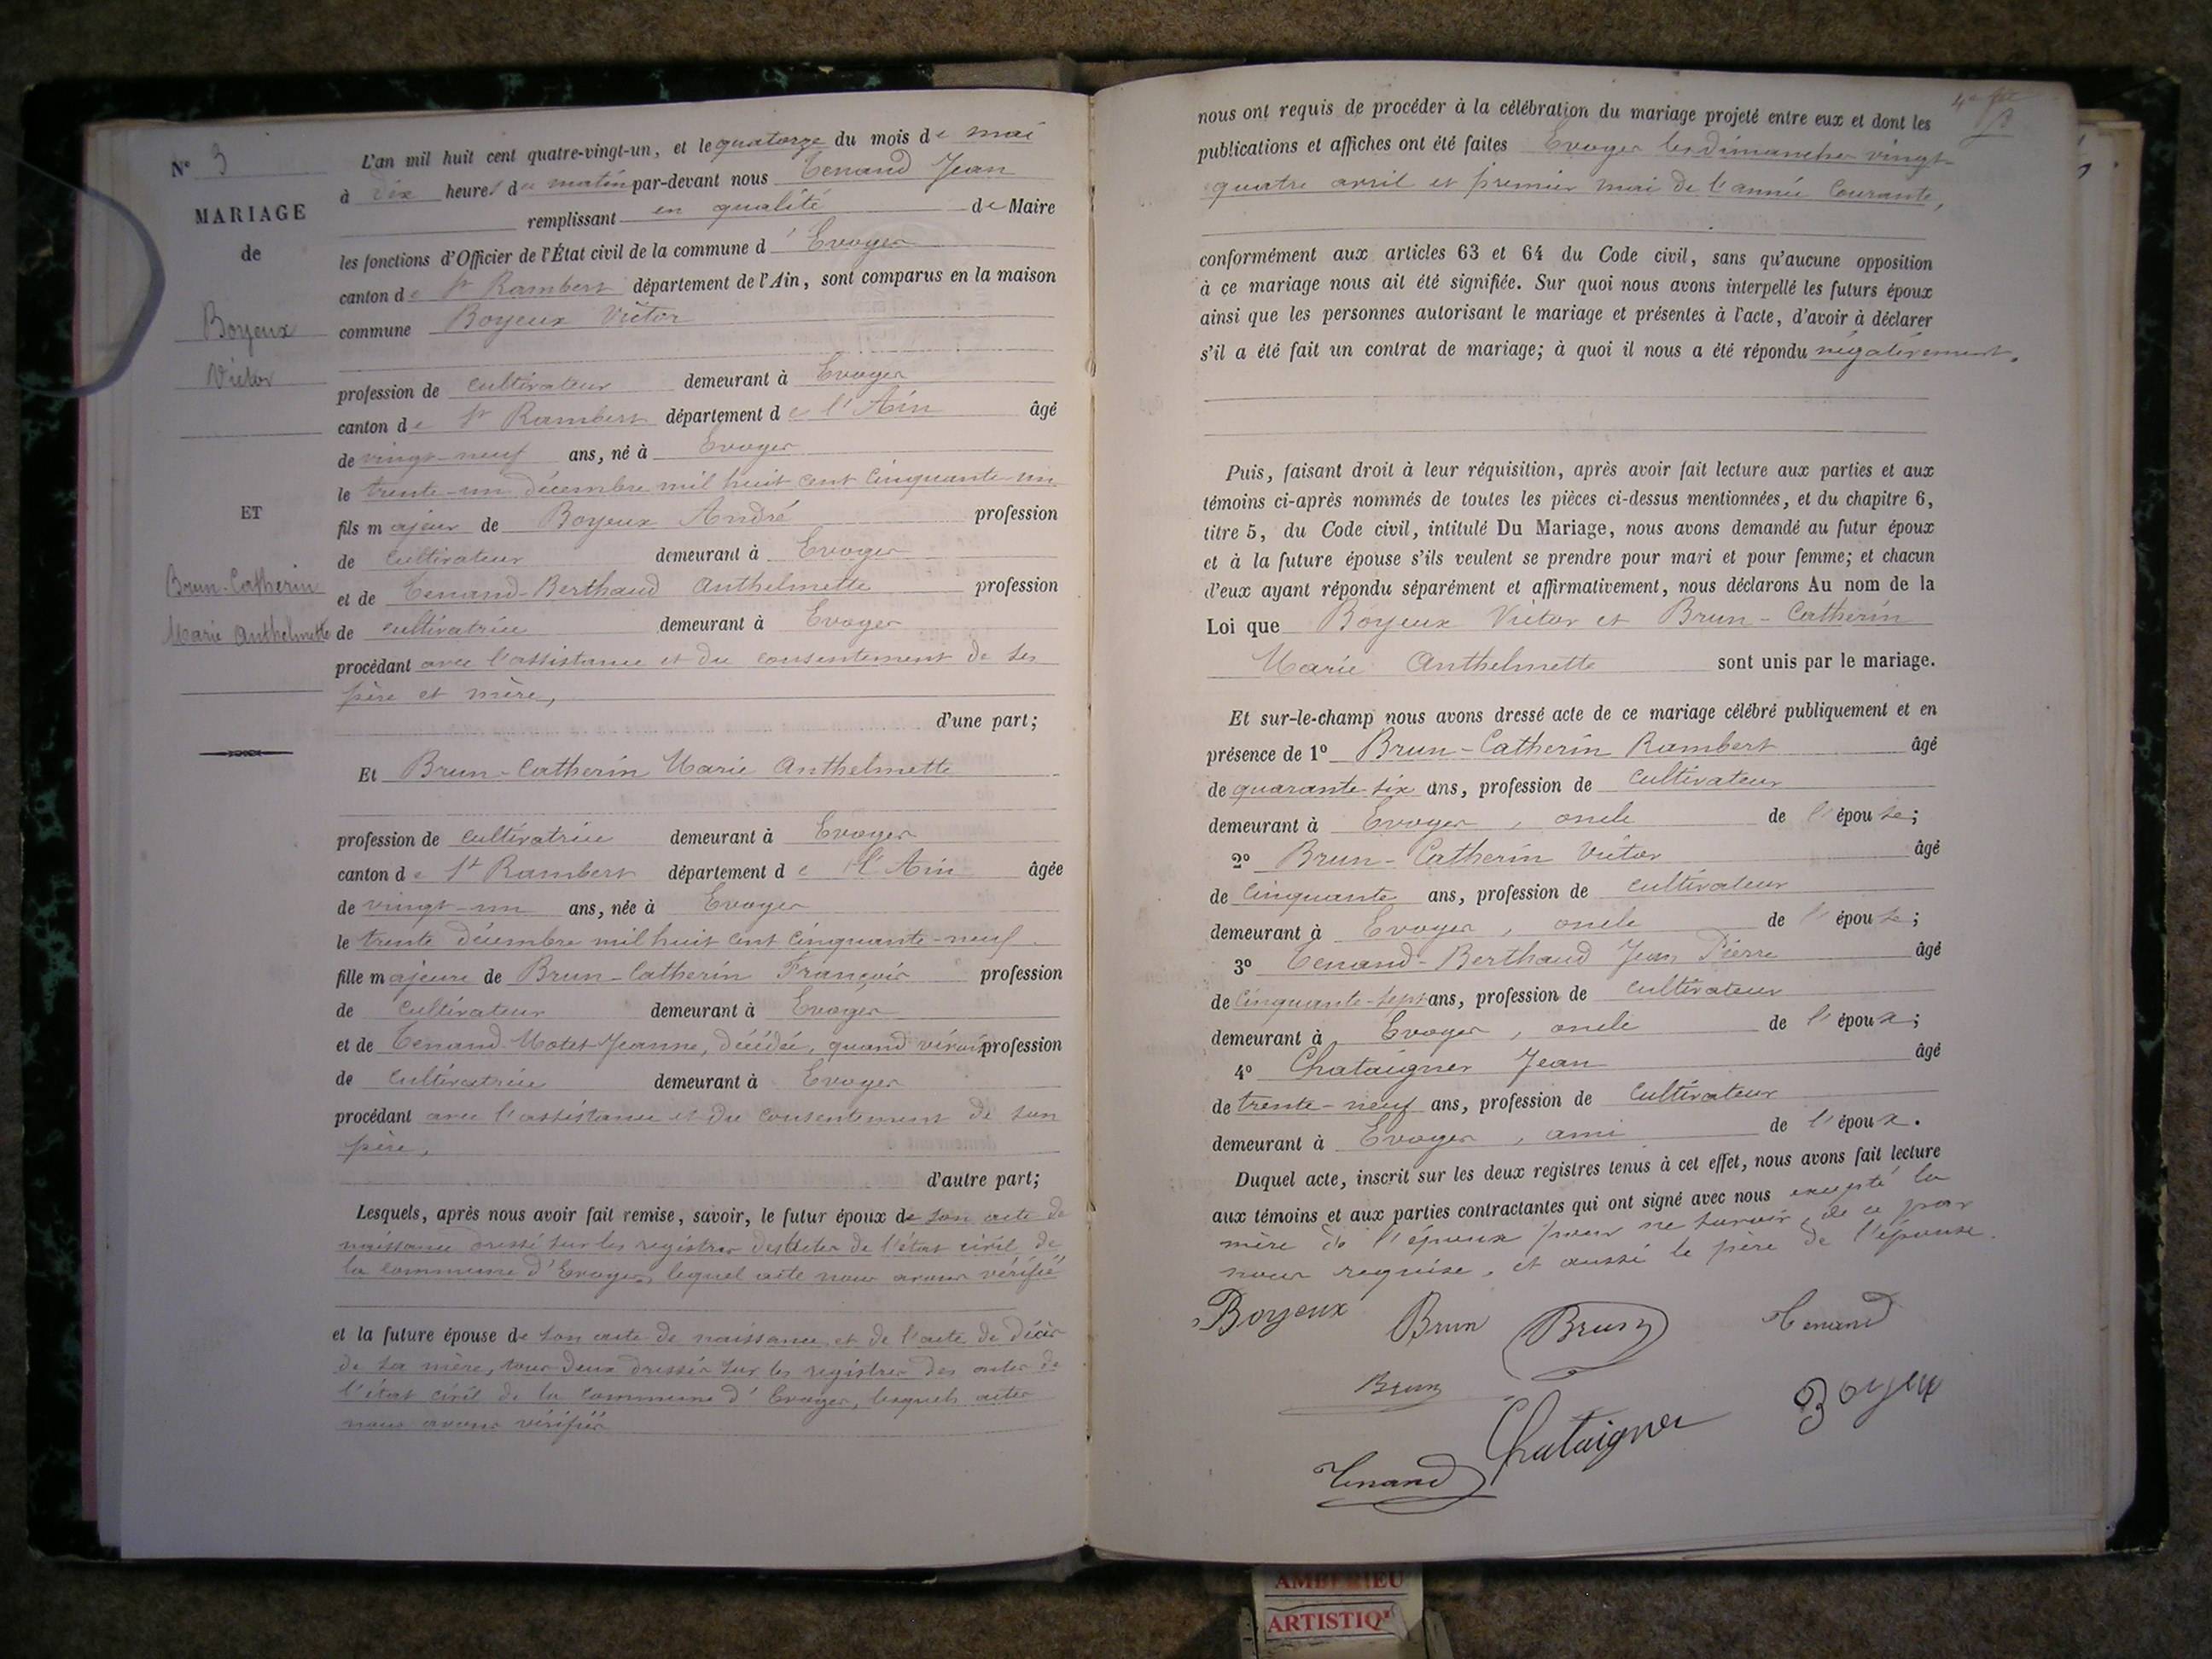 N° 3
MARIAGE
de
Boyeux
Victor
ET
Brun-Catherin
Marie Anthelmette
L'an mil huit cent quatre-vingt-un, et le quatorze du mois de mai
à dix heures du matin par-devant nous Tenand Jean
remplissant en qualité de Maire
les fonctions d'Officier de l'État civil de la commune d'Evoges
canton de St Rambert département de l'Ain, sont comparus en la maison
commune Boyeux Victor
profession de cultivateur demeurant à Evoges
canton de St Rambert département de l'Ain âgé
de vingt-neuf ans, né à Evoges
le trente-un décembre mil huit cent cinquante-un
fils majeur de Boyeux André profession
de cultivateur demeurant à Evoges
et de Tenand-Berthaud Anthelmette profession
de cultivatrice demeurant à Evoges
procédant avec l'assistance et du consentement de ses
père et mère,
d'une part;
Et Brun-Catherin Marie Anthelmette
profession de cultivatrice demeurant à Evoges
canton de St Rambert département de l'Ain âgée
de vingt-un ans, née à Evoges
le trente décembre mil huit cent cinquante-neuf
fille majeure de Brun-Catherin François profession
de cultivateur demeurant à Evoges
et de Tenand-Motet Jeanne, décédée, quand vivait profession
de cultivatrice demeurant à Evoges
procédant avec l'assistance et du consentement de son
père,
d'autre part;
Lesquels, après nous avoir fait remise, savoir, le futur époux de son acte de
naissance dressé sur les registres des actes de l'état civil de
la commune d'Evoges, lequel acte nous avons vérifié
et la future épouse de son acte de naissance et de l'acte de décès
de sa mère, tous deux dressés sur les registres des actes de
l'état civil de la commune d'Evoges, lesquels actes
nous avons vérifiés
nous ont requis de procéder à la célébration du mariage projeté entre eux et dont les
publications et affiches ont été faites Evoges les dimanches vingt-
quatre avril et premier mai de l'année courante,
conformément aux articles 63 et 64 du Code civil, sans qu'aucune opposition
à ce mariage nous ait été signifiée. Sur quoi nous avons interpellé les futurs époux
ainsi que les personnes autorisant le mariage et présentes à l'acte, d'avoir à déclarer
s'il a été fait un contrat de mariage; à quoi il nous a été répondu négativement.
Puis, faisant droit à leur réquisition, après avoir fait lecture aux parties et aux
témoins ci-après nommés de toutes les pièces ci-dessus mentionnées, et du chapitre 6,
titre 5, du Code civil, intitulé Du Mariage, nous avons demandé au futur époux
et à la future épouse s'ils veulent se prendre pour mari et pour femme; et chacun
d'eux ayant répondu séparément et affirmativement, nous déclarons Au nom de la
Loi que Boyeux Victor et Brun-Catherin
Marie Anthelmette sont unis par le mariage.
Et sur-le-champ nous avons dressé acte de ce mariage célébré publiquement et en
présence de 1° Brun-Catherin Rambert âgé
de quarante-six ans, profession de cultivateur
demeurant à Evoges, oncle de l'épouse;
2° Brun-Catherin Victor âgé
de cinquante ans, profession de cultivateur
demeurant à Evoges, oncle de l'épouse;
3° Tenand-Berthaud Jean Pierre âgé
de cinquante-sept ans, profession de cultivateur
demeurant à Evoges, oncle de l'époux;
4° Chataigner Jean âgé
de trente-neuf ans, profession de cultivateur
demeurant à Evoges, ami de l'époux.
Duquel acte, inscrit sur les deux registres tenus à cet effet, nous avons fait lecture
aux témoins et aux parties contractantes qui ont signé avec nous excepté la
mère de l'époux pour ne savoir, de ce par
nous requise, et aussi le père de l'épouse.
Boyeux Brun Brun Tenand
Brun
Chataigner Boyeux
Tenand
AMBERIEU
ARTISTIQ